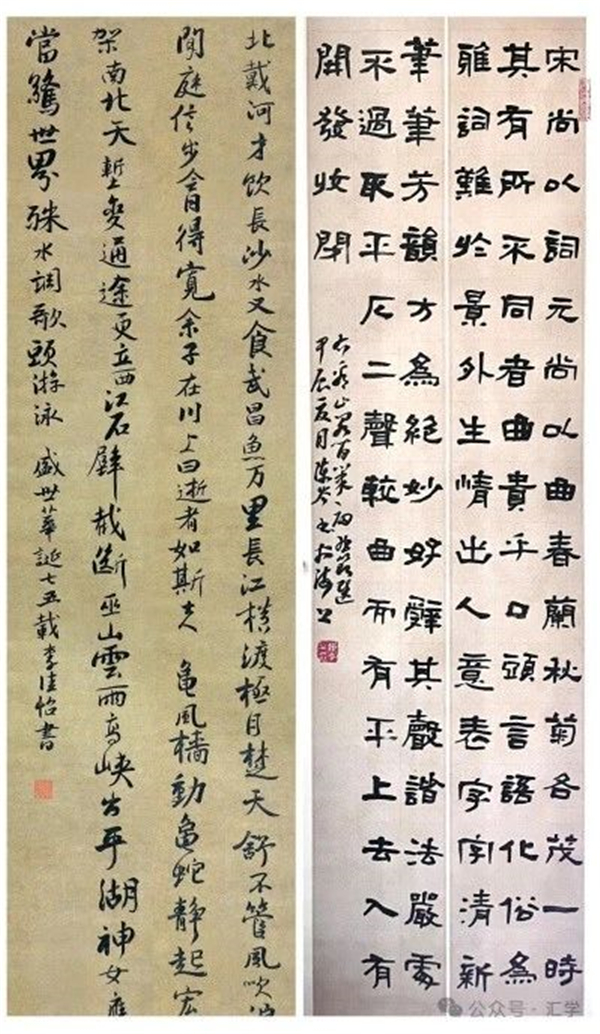 宋尚以詞元尚以曲春蘭秋菊各茂一時
其有所不同者曲貴乎口頭言語化俗為
雅詞難於景外生情出人意表字字清新
筆筆芳韻方為絕妙好辭其聲諧法嚴處
不過取平仄二聲較曲而有平上去入有
開發收閉
甲辰夏月
北戴河才飲長沙水又食武昌魚万里長江橫渡極目楚天舒不管風吹
閒庭信步今日得寬余子在川上曰逝者如斯夫 龜風檣動龜蛇靜起宏
架南北天塹變通途更立西江石壁截斷巫山雲雨高峽出平湖神女應
當驚世界殊水調歌頭游泳 盛世華誕七五載李佳怡書
公众号·汇学